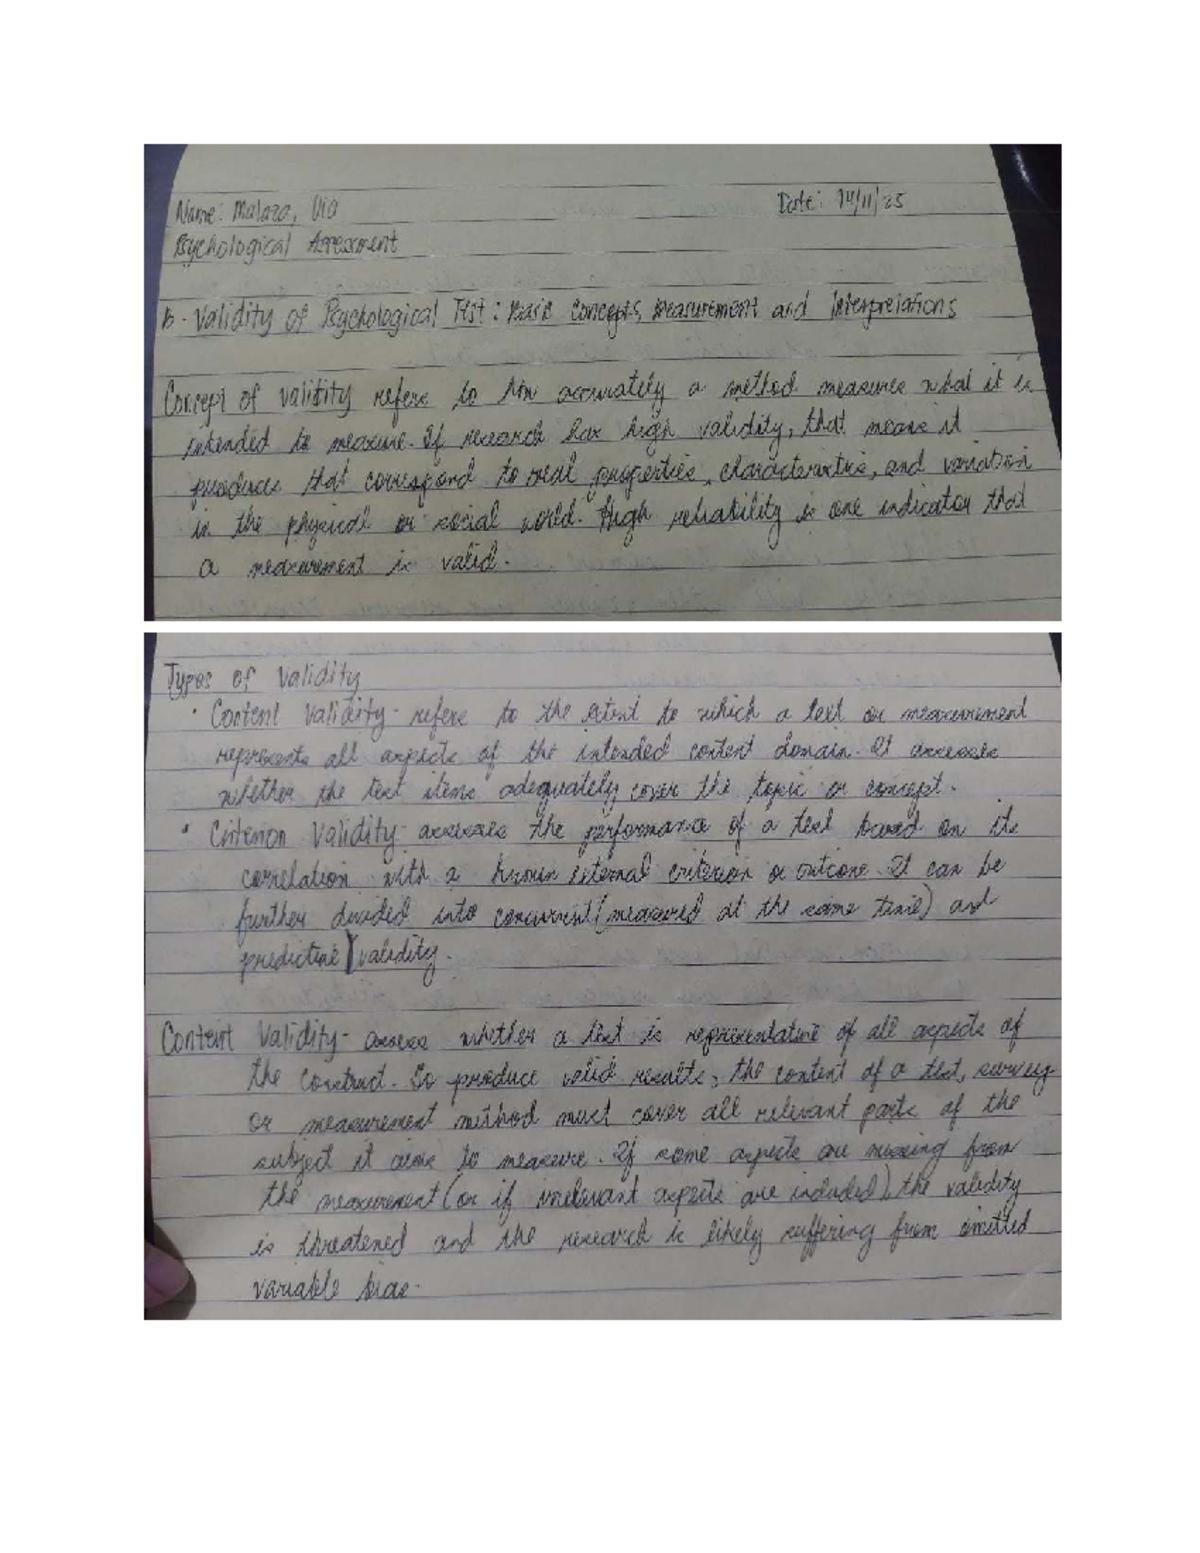 Name: Malaza, Via
Date: 14/11/25
Psychological Assessment
B. Validity of Psychological Test: Basic Concepts, Measurement and Interpretations
Concept of validity refers to how accurately a method measures what it is
intended to measure. If research has high validity, that means it
produces that correspond to real properties, characteristics, and variation
in the physical or social world. High reliability is one indicator that
a measurement is valid.
Types of validity
• Content Validity- refers to the extent to which a test or measurement
represents all aspects of the intended content domain. It assesses
whether the test items adequately cover the topic or concept.
• Criterion Validity- assesses the performance of a test based on its
correlation with a known external criterion or outcome. It can be
further divided into concurrent (measured at the same time) and
predictive validity.
Content Validity- assess whether a test is representative of all aspects of
the construct. To produce valid results, the content of a test, survey
or measurement method must cover all relevant parts of the
subject it aims to measure. If some aspects are missing from
the measurement (or if irrelevant aspects are included), the validity
is threatened and the research is likely suffering from omitted
variable bias.